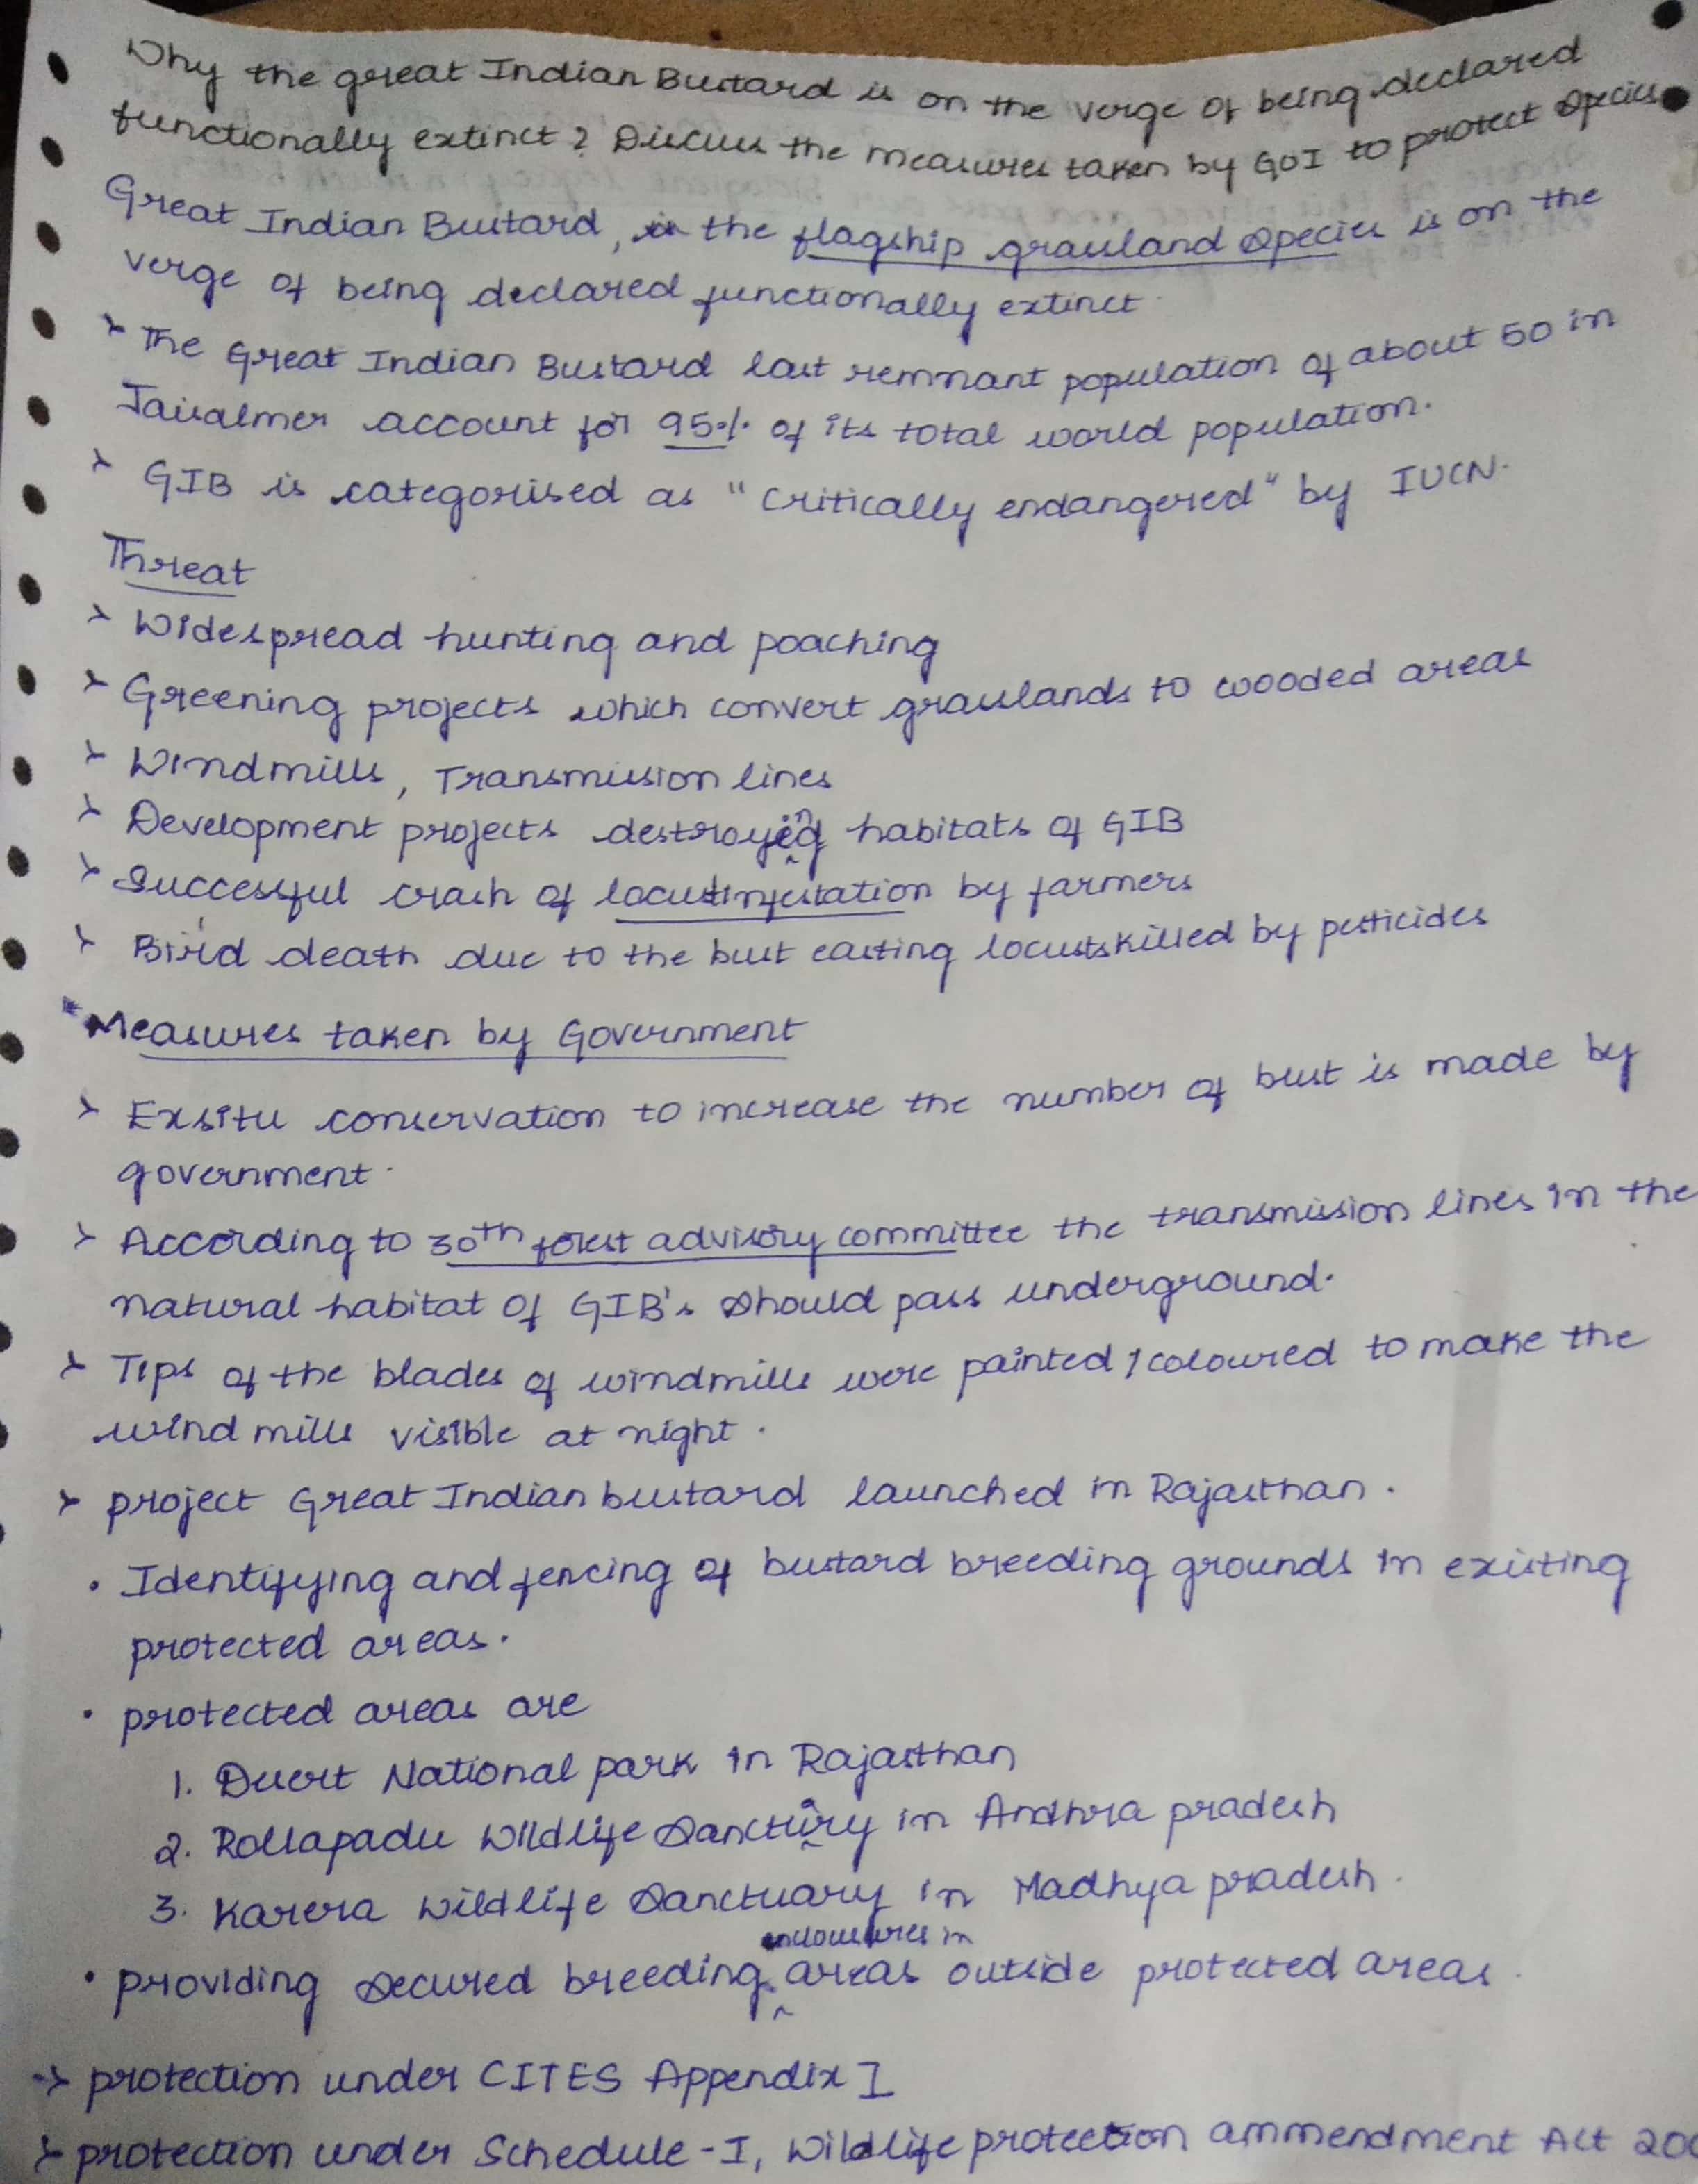 Why the great Indian Bustard is on the verge of being declared
functionally extinct? Discuss the measures taken by GOI to protect species
Great Indian Bustard, the flagship grassland species is on the
verge of being declared functionally extinct
The Great Indian Bustard last remnant population of about 50 in
Jaisalmer account for 95% of its total world population.
GIB is categorised as "critically endangered" by IUCN.
Threat
Widespread hunting and poaching
Greening projects which convert grasslands to wooded areas
Windmills, Transmission lines
Development projects destroying habitats of GIB
Successful crash of locust infestation by farmers
Bird death due to the bust eating locusts killed by pesticides
*Measures taken by Government
Exsitu conservation to increase the number of bust is made by
government.
According to 30th forest advisory committee the transmission lines in the
natural habitat of GIB's should pass underground.
Tips of the blades of windmills were painted/coloured to make the
wind mills visible at night.
project Great Indian bustard launched in Rajasthan.
• Identifying and fencing of bustard breeding grounds in existing
protected areas.
• protected areas are
1. Desert National park in Rajasthan
2. Rollapadu Wildlife Sanctuary in Andhra pradesh
3. Karera Wildlife Sanctuary in Madhya pradesh.
• providing secured breeding enclosures in areas outside protected areas.
→ protection under CITES Appendix I
protection under Schedule-I, Wildlife protection ammendment Act